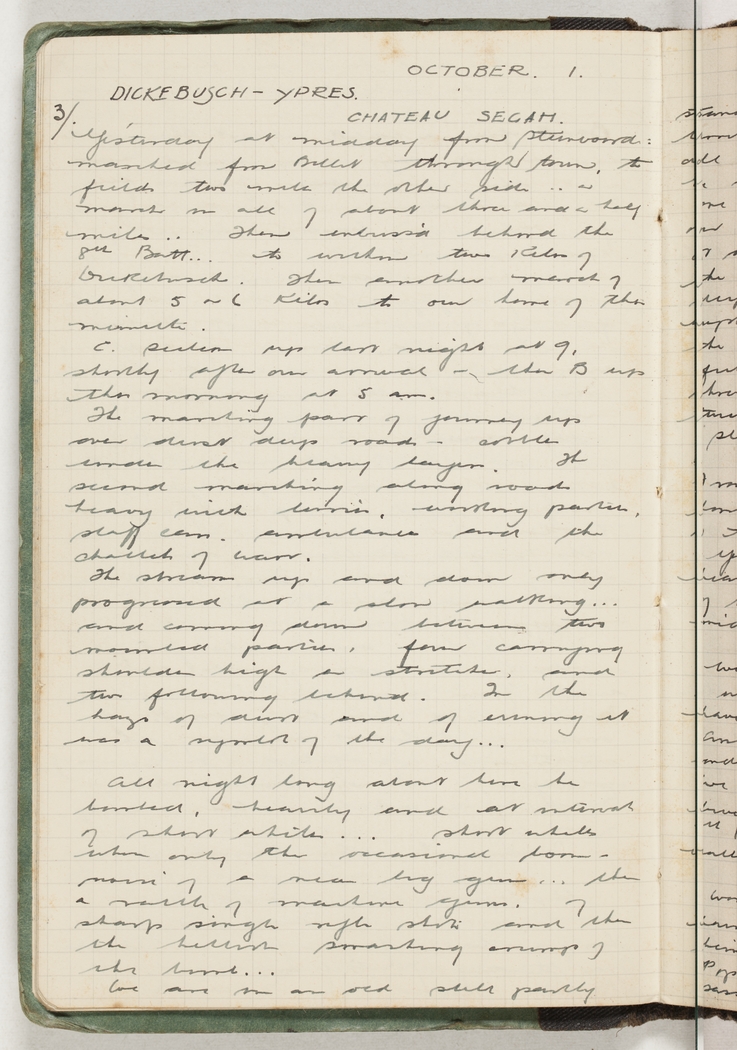 OCTOBER. 1.
DICKEBUSCH - YPRES.
CHATEAU SEGAH.
3/. Yesterday at midday from Steenvoorde:
marched from Billet through town, to
fields two mile the other side .. a
march in all of about three and a half
mile .. Then embussed behind the
8th Batt... to within two Kilos of
Dickebusch. Then another march of
about 5 or 6 Kilos to our home of the
minute.
C. Section up last night at 9,
shortly after our arrival - then B up
this morning at 5 am.
The marching part of journey up
over dust deep roads - cobbles
under the heavy layers. The
second marching along roads
heavy with lorries, working parties,
staff cars, ambulances and the
of war.
The stream up and down only
progressed at a slow walking...
and coming down between two
mounted parties, four carrying
shoulder high a stretcher, and
two following behind. In the
haze of dust and of evening it
was a symbol of the day...
All night long about here he
bombed, heavily and at interval
of short whiles... short whiles
when only the occasional boom-
noise of a near big gun... the
a rattle of machine guns, of
sharp single rifle shots and the
the hellish smashing crump of
the bomb...
We are in an old still partly